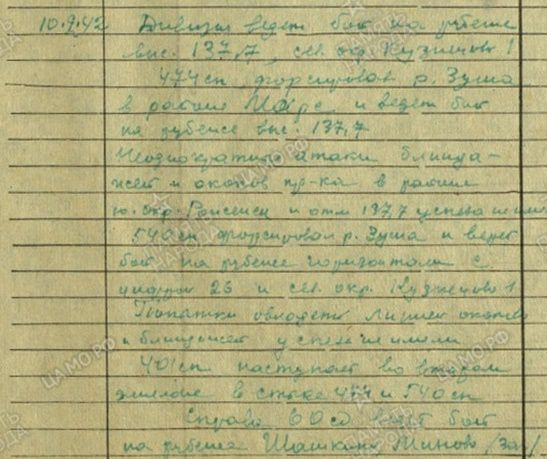 10.9.42 Дивизия ведет бой на рубеже
выс. 137,7, сев. окр. Кузнецово 1
474 сп, форсировав р. Зуша
в районе и ведет бой
на рубеже выс. 137,7
Неоднократные атаки блинда-
жей и окопов пр-ка в районе
ю. окр. и отм 137,7 успеха не им
540 сп форсировал р. Зуша и ведет
бой на рубеже горизонтали с
цифрой 26 и сев. окр. Кузнецово 1
Попытки овладеть линией окопов
и блиндажей успеха не имели
401 сп наступает во втором
эшелоне в стыке 474 и 540 сп
Справа 60 сд ведет бой
на рубеже Шашкино
ЦАМО.РФ
ЦАМО.РФ